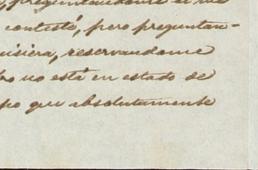 contesté, pero preguntan-
quisiera, reservandome
no está en estado de
po que absolutamente